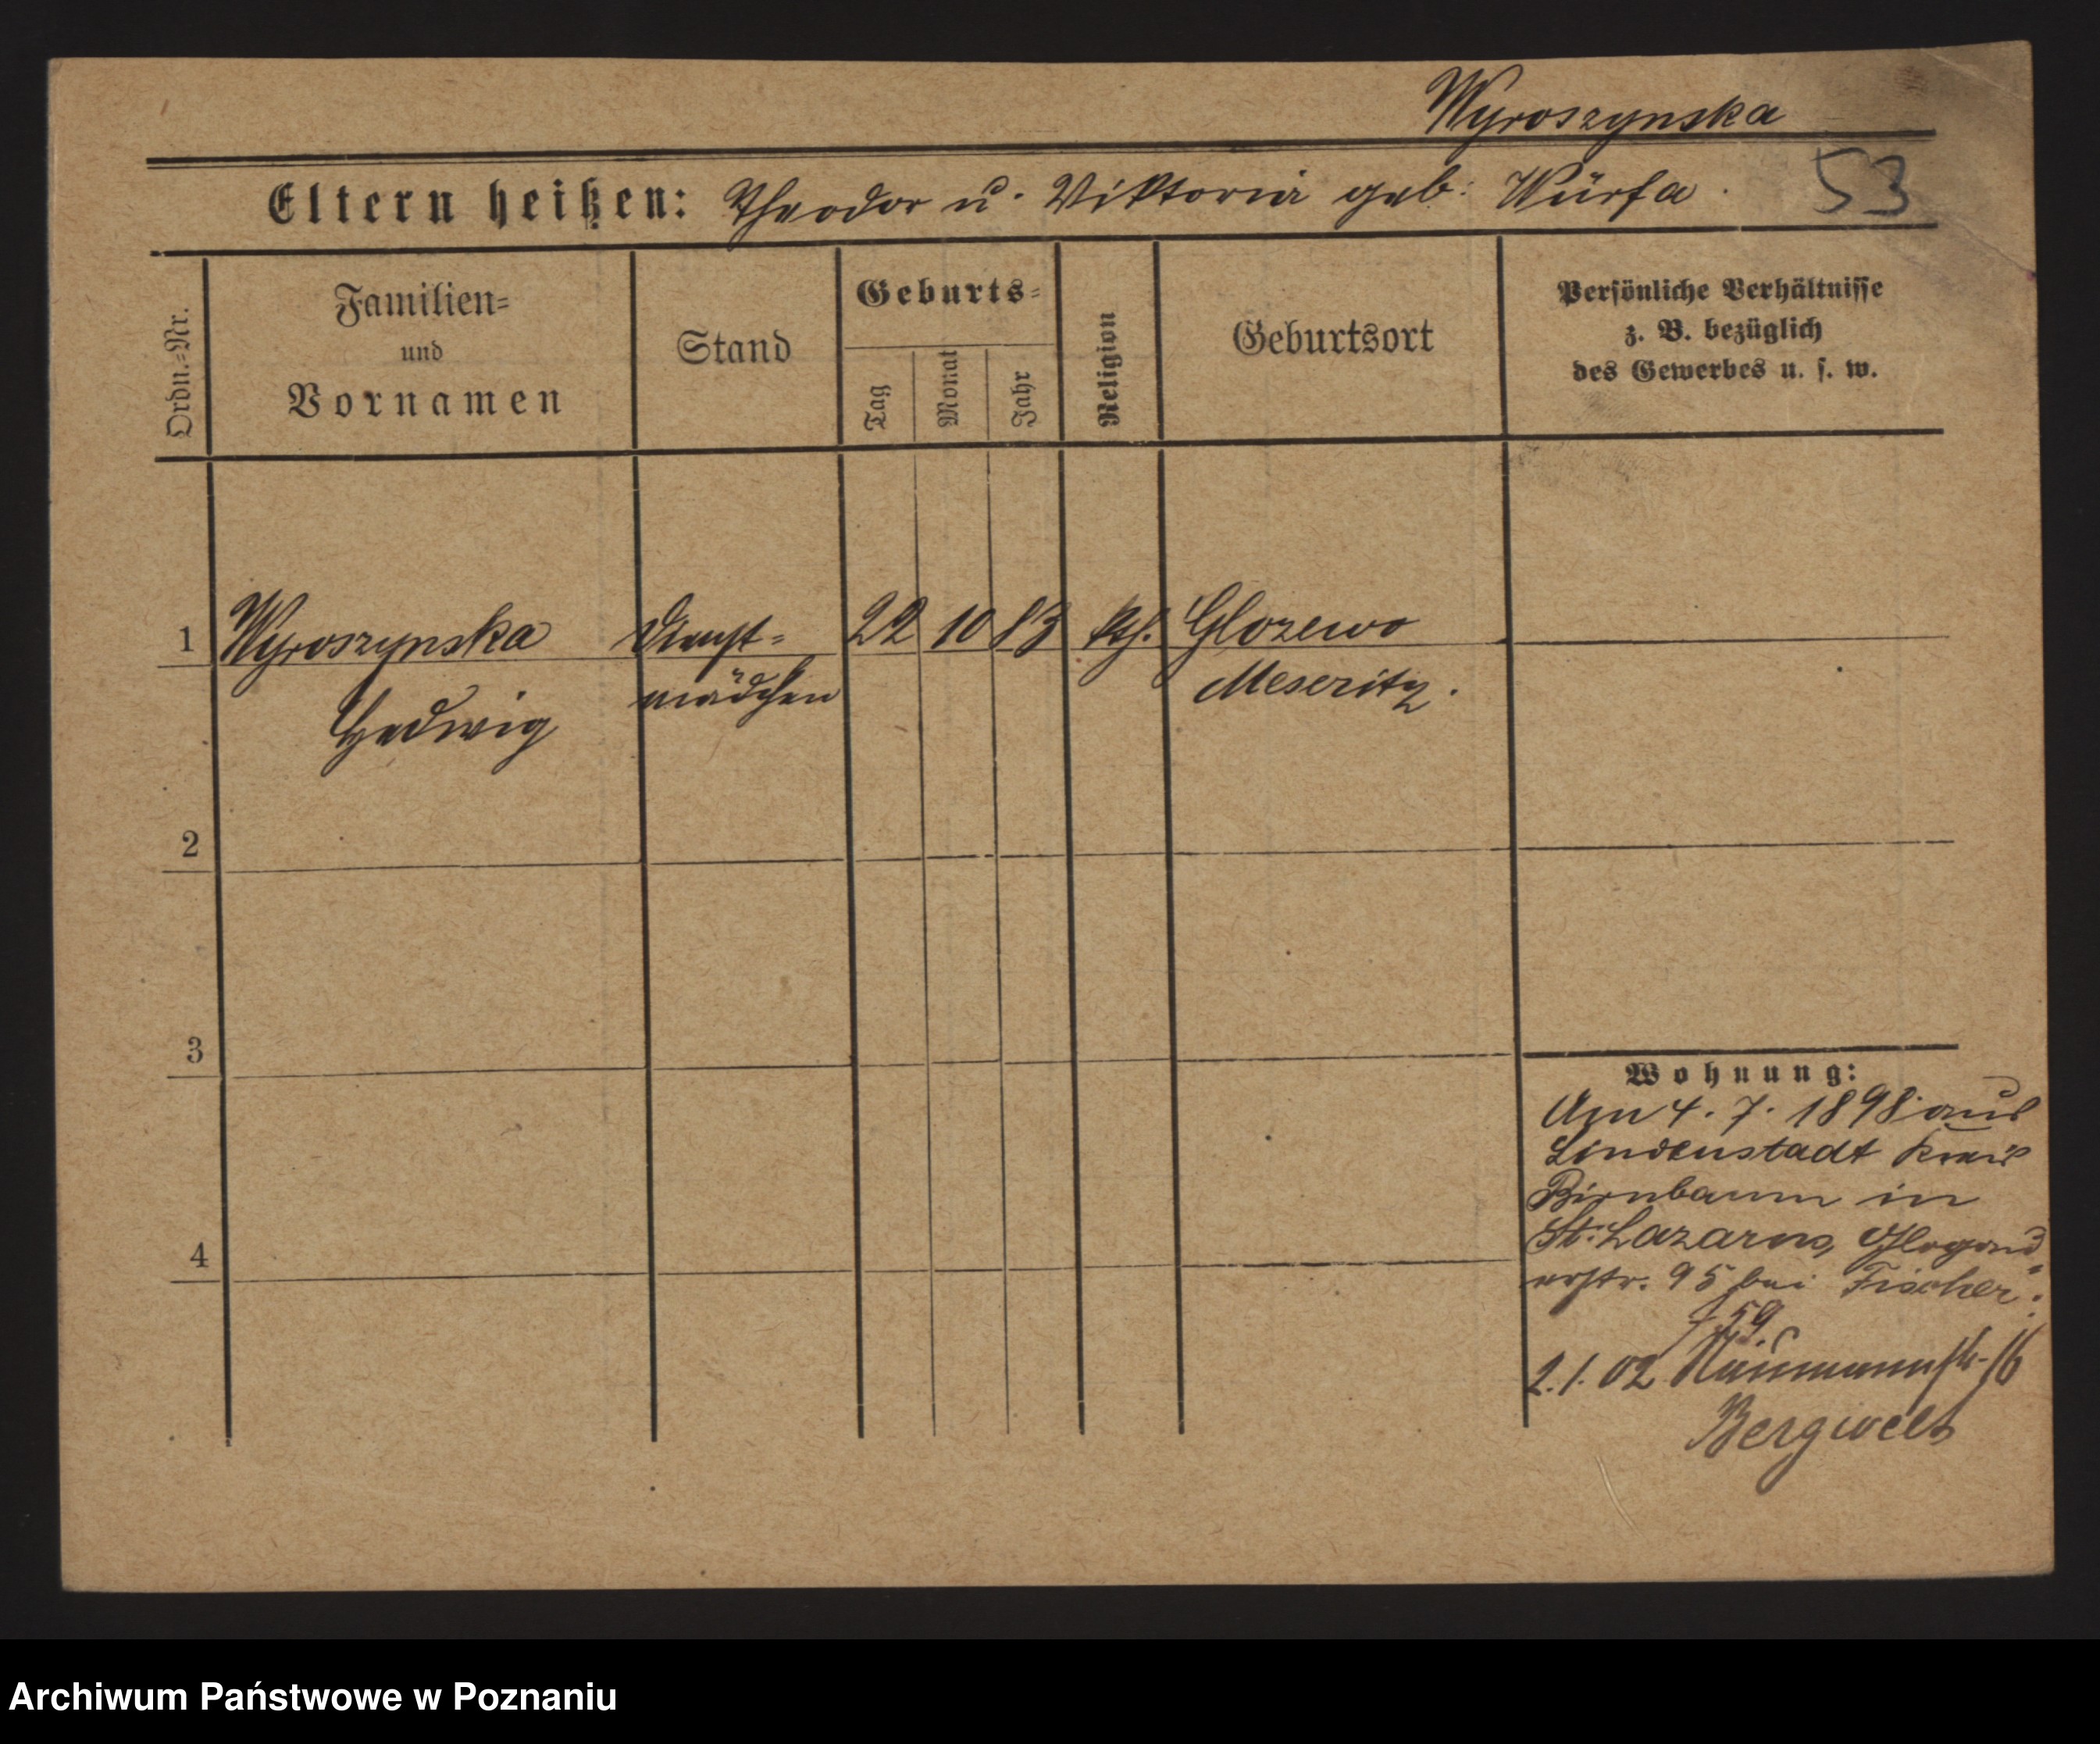 Wyroszynska
Eltern heißen: Theodor u. Viktoria geb: Würfa.
53
Ordn.=Nr.
Familien=
und
Vornamen
Stand
Geburts=
Tag
Monat
Jahr
Religion
Geburtsort
Persönliche Verhältnisse
z. B. bezüglich
des Gewerbes u. s. w.
1 Wyroszynska Dienst= 22 10 83 kth. Glozewo
Hedwig mädchen Meseritz.
2
3
4
Wohnung:
Am 4. 7. 1898 aus
Lindenstadt Kreis
Birnbaum in
St. Lazarus, Glogau=
erstr. 95 bei Fischer.
f 59.
2.1.02 Naumannstr. 16
Archiwum Państwowe w Poznaniu